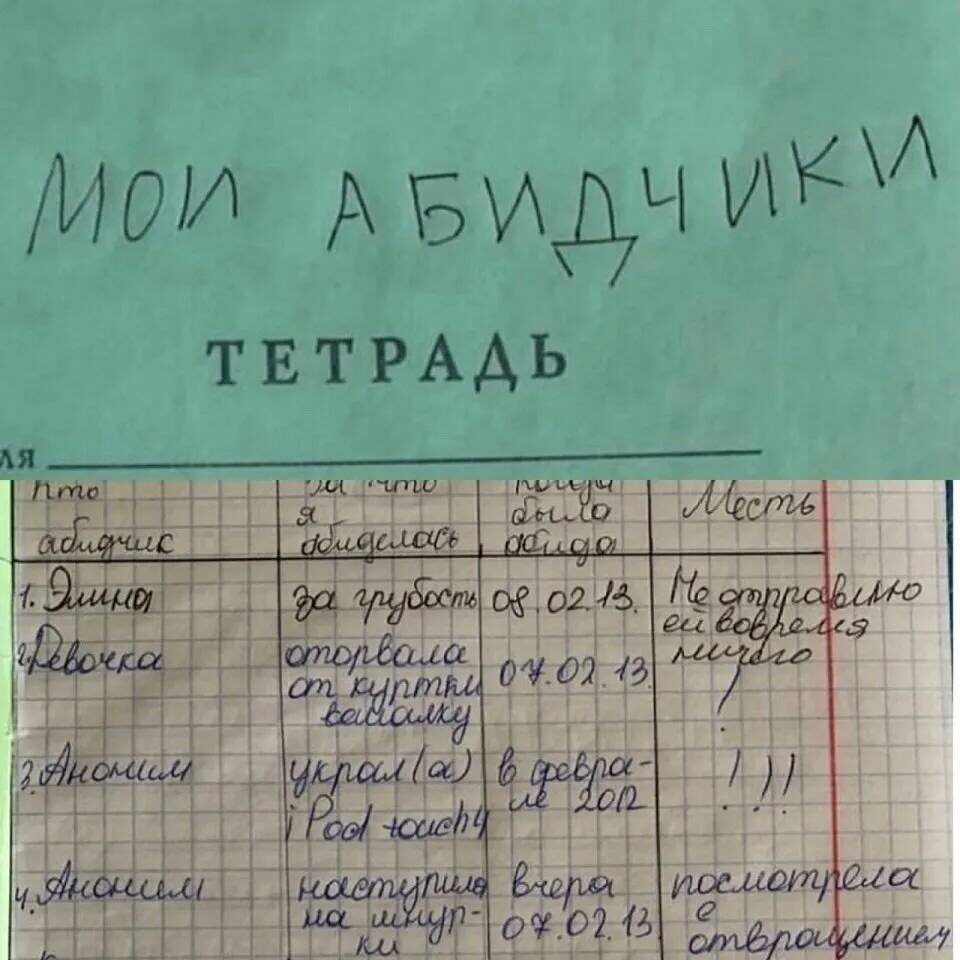 МОИ АБИДЧИКИ
ТЕТРАДЬ
ля
кто за что когда Месть
я была
абидчик абиделась абида
1. Элина за грубость 08.02.13. Не отправлю
ей вовремя
ничего
2. Девочка оторвала 07.02.13.
от куртки !
вешалку
3. Аноним украл(а) в февра- !!!
iPod touch 4 ле 2012
4. Аноним наступила вчера посмотрела
на шнур- 07.02.13 с
ки отвращением